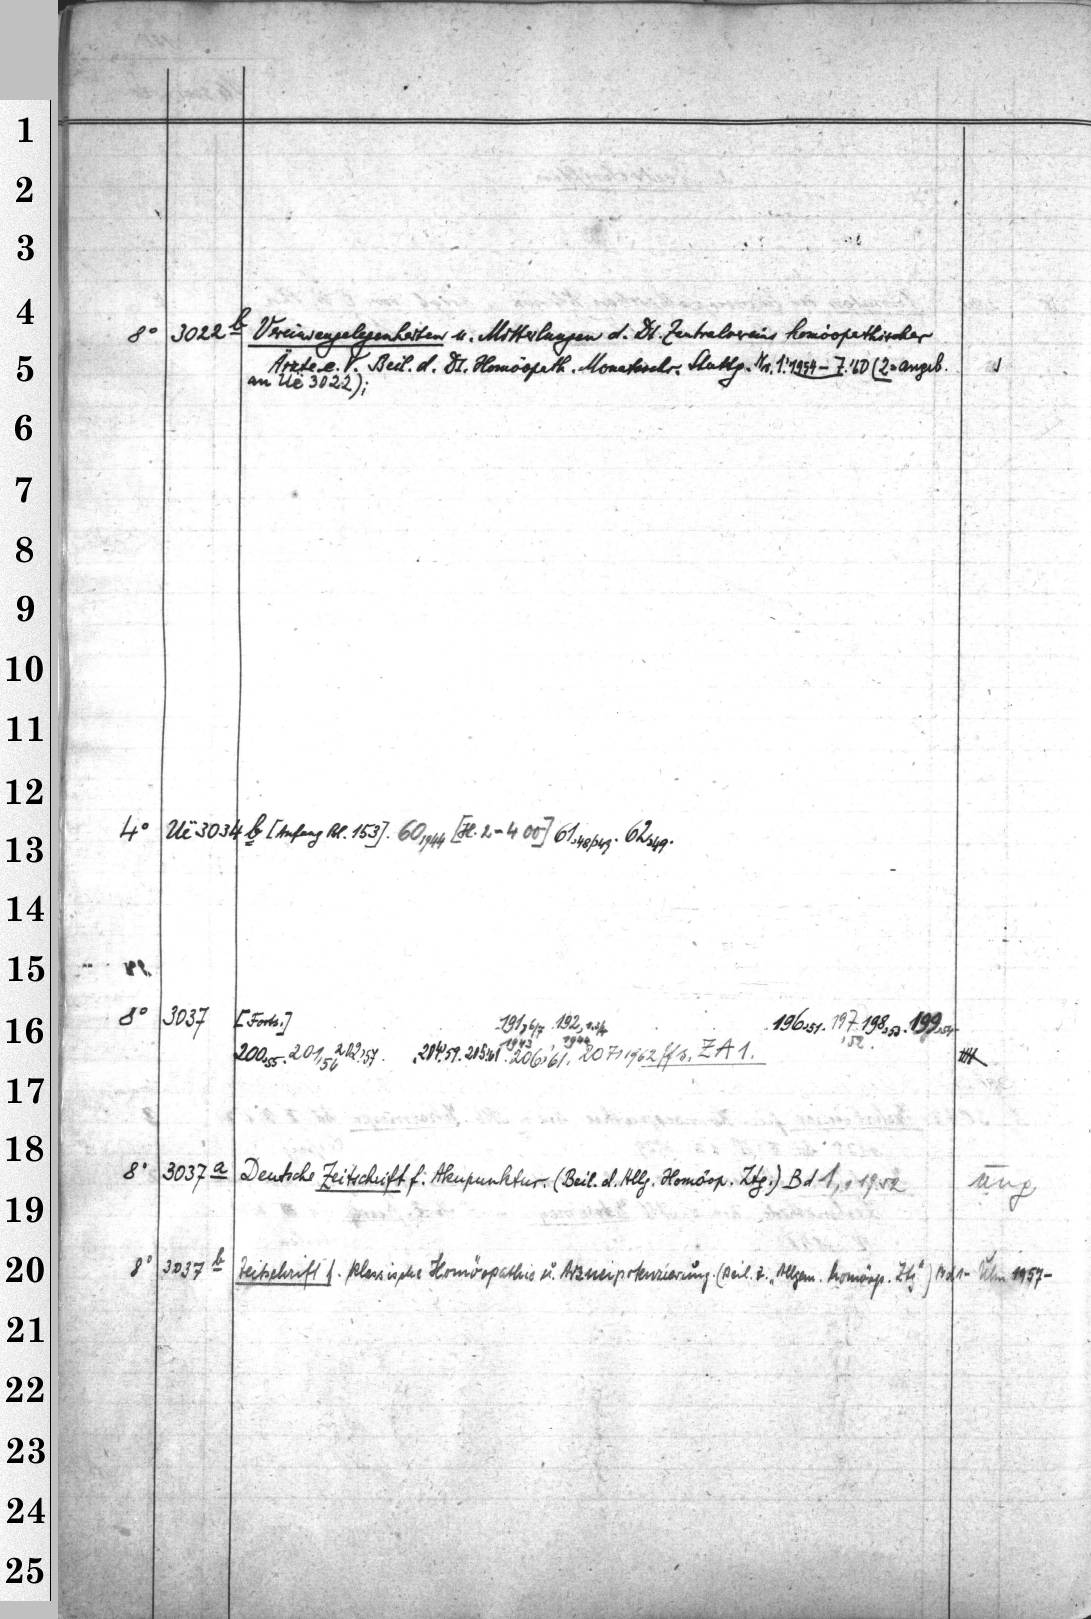 1
2
3
4
8° 3022 b Vereinsangelegenheiten u. Mitteilungen d. Dt. Zentralvereins homöopathischer
5
Ärzte e. V. Beil. d. Dt. Homöopath. Monatsschr. Stuttg. Nr. 1.1954 - 7.'60 (2=angeb.
an Ue 3022);
6
7
8
9
10
11
12
4° Uë 3034 b [Anfang Bl. 153]. 60,1944 [H. 2-4 00] 61,48/49. 62,49.
13
14
15
8° 3037 [Forts.] 191, 6/7 1943 192, 1944 196,51. 197,52. 198,53. 199,54
16
200,55. 201,56 202,57. 204,59. 205,61 206,'61. 207,1962 ff s. ZA 1.
17
18
8° 3037 a Deutsche Zeitschrift f. Akupunktur. (Beil. d. Allg. Homöop. Ztg.) Bd 1, 1952 ang
19
20
8° 3037 b Zeitschrift f. klassische Homöopathie u. Arzneipotenzierung. (Beil. z. „Allgem. homöop. Ztg“) Bd 1- Ulm 1957-
21
22
23
24
25